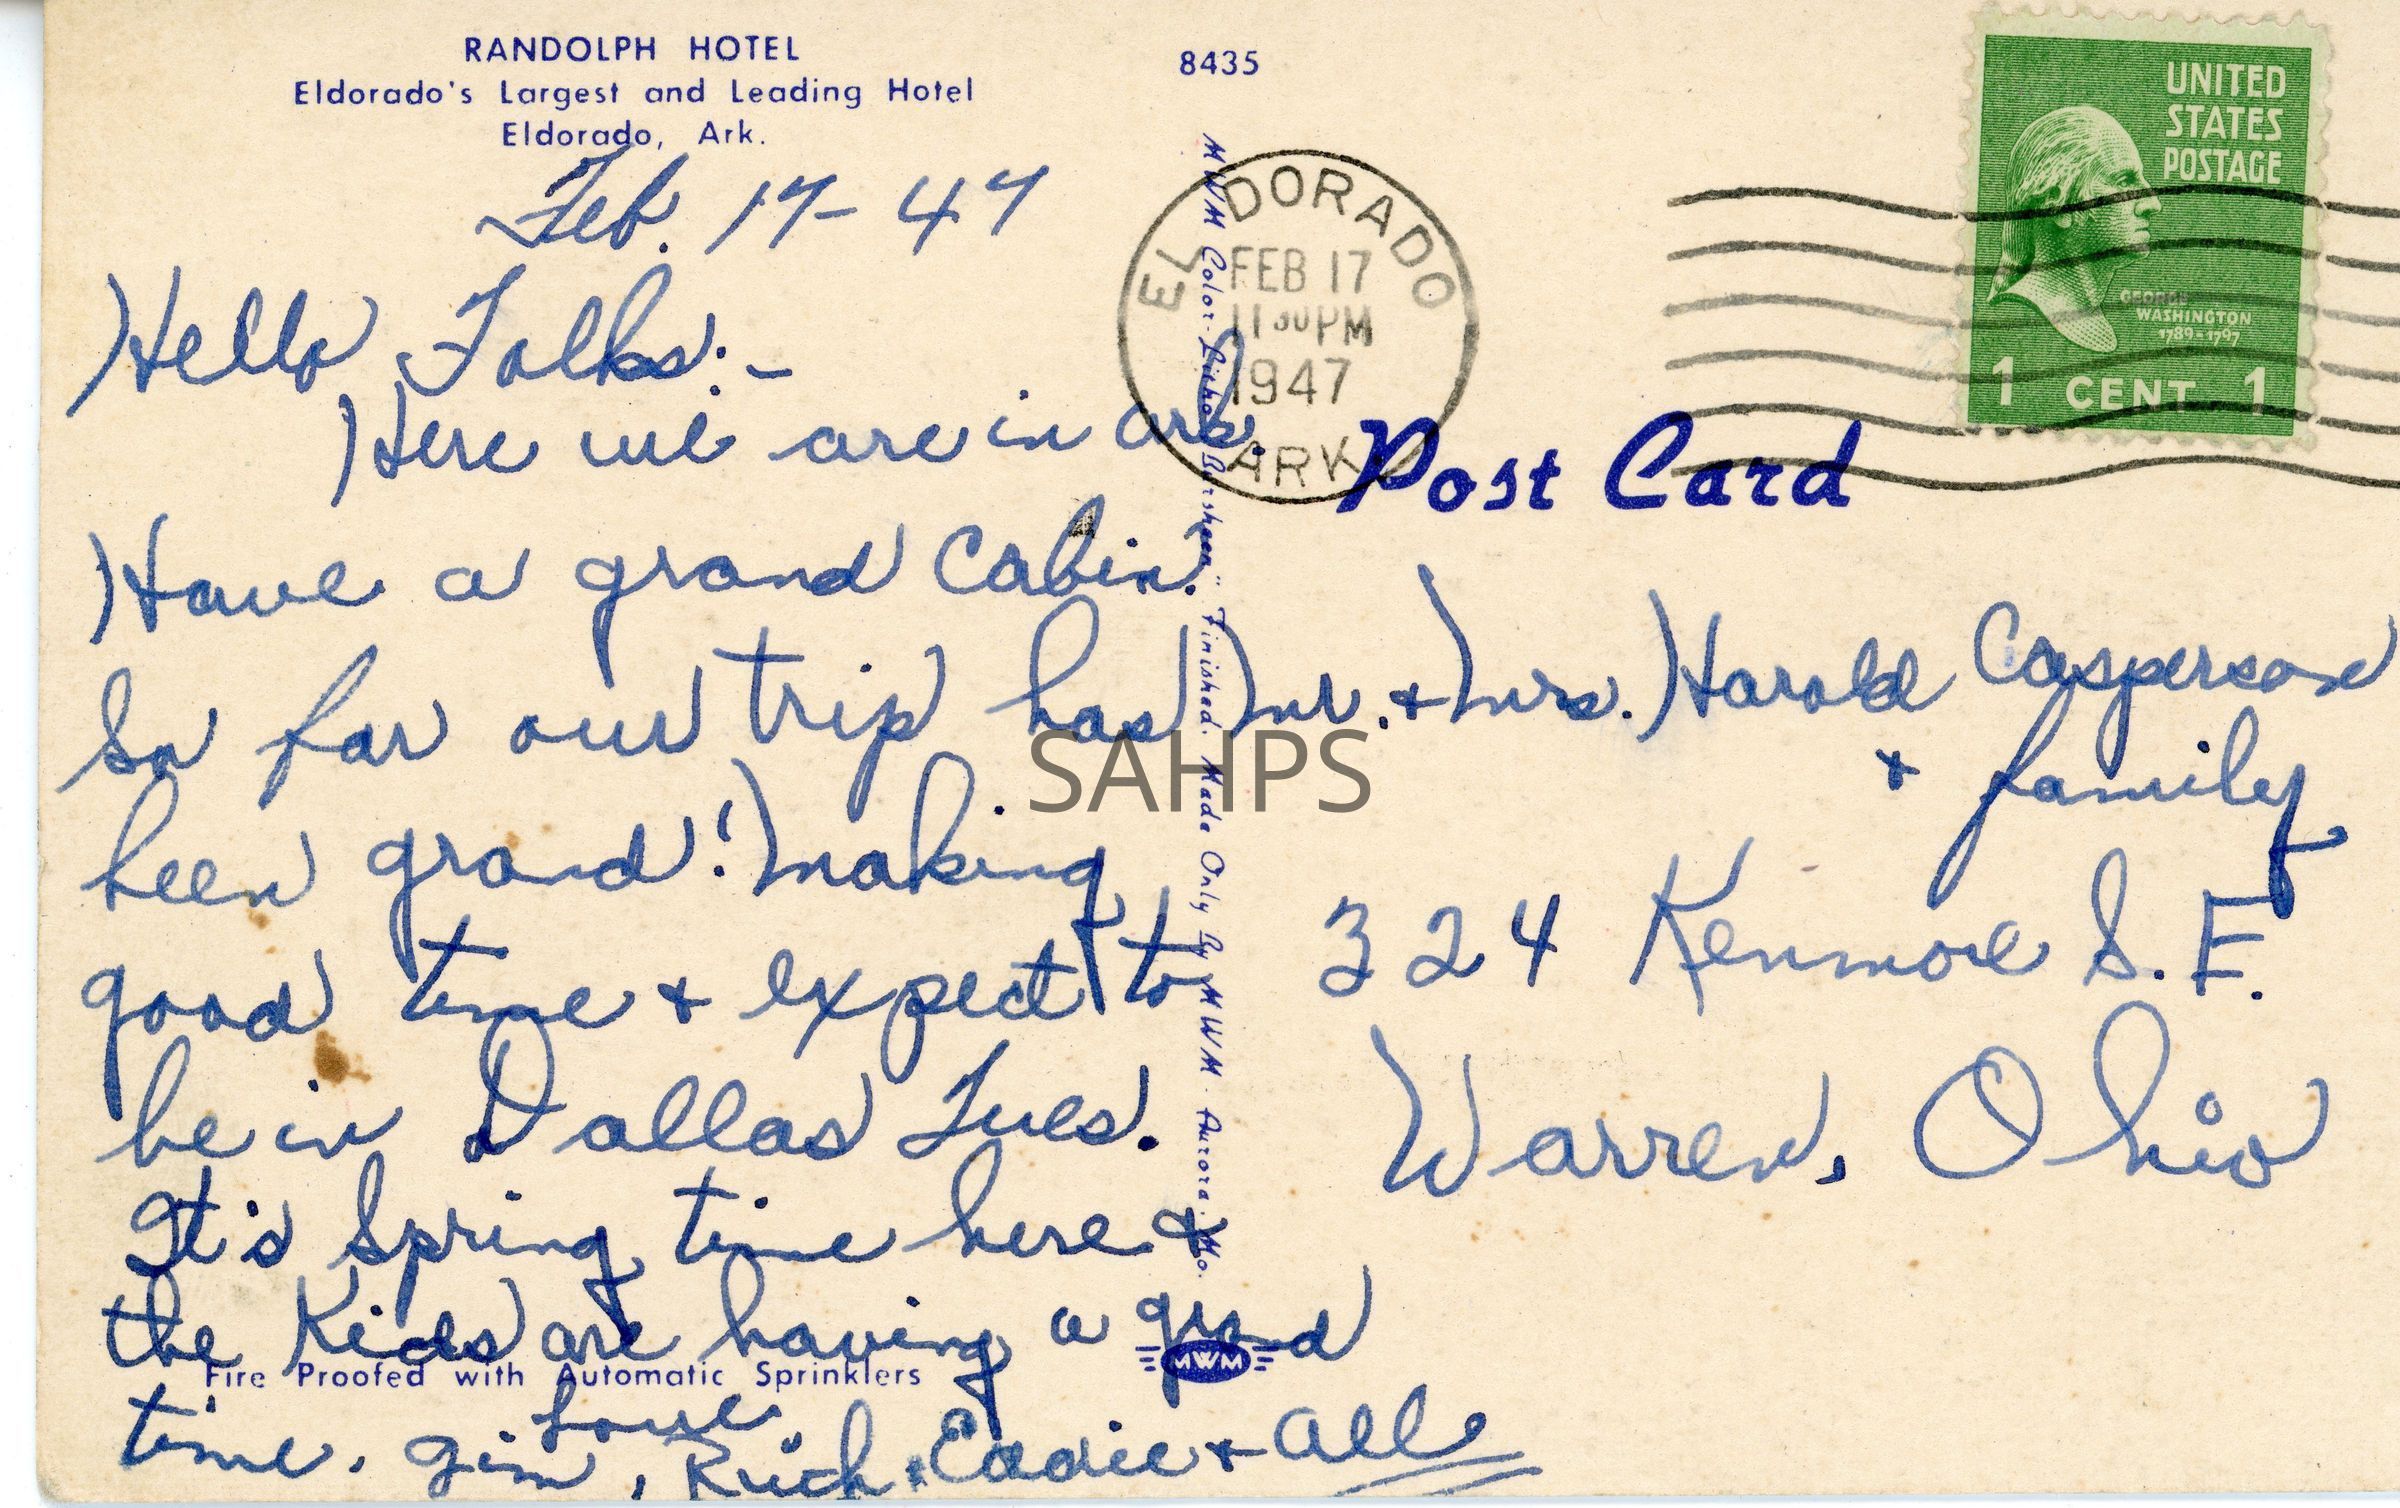 RANDOLPH HOTEL
Eldorado's Largest and Leading Hotel
Eldorado, Ark.
8435
Feb. 17-47
Hello Folks:-
Here we are in Ark.
Have a grand cabin.
So far our trip has
been grand! Making
good time & expect to
be in Dallas Tues.
It's Spring time here &
the Kids are having a grand
time. Love
Jim, Rich, Eddie & All
Fire Proofed with Automatic Sprinklers
MWM Color-Litho "Finished. Made Only By MWM. Aurora. Mo.
MWM
EL DORADO
FEB 17
11 30 PM
1947
ARK
UNITED
STATES
POSTAGE
GEORGE
WASHINGTON
1789-1797
1 CENT 1
Post Card
Mr. & Mrs. Harold Casperson
& family
324 Kenmore S.E.
Warren, Ohio
SAHPS